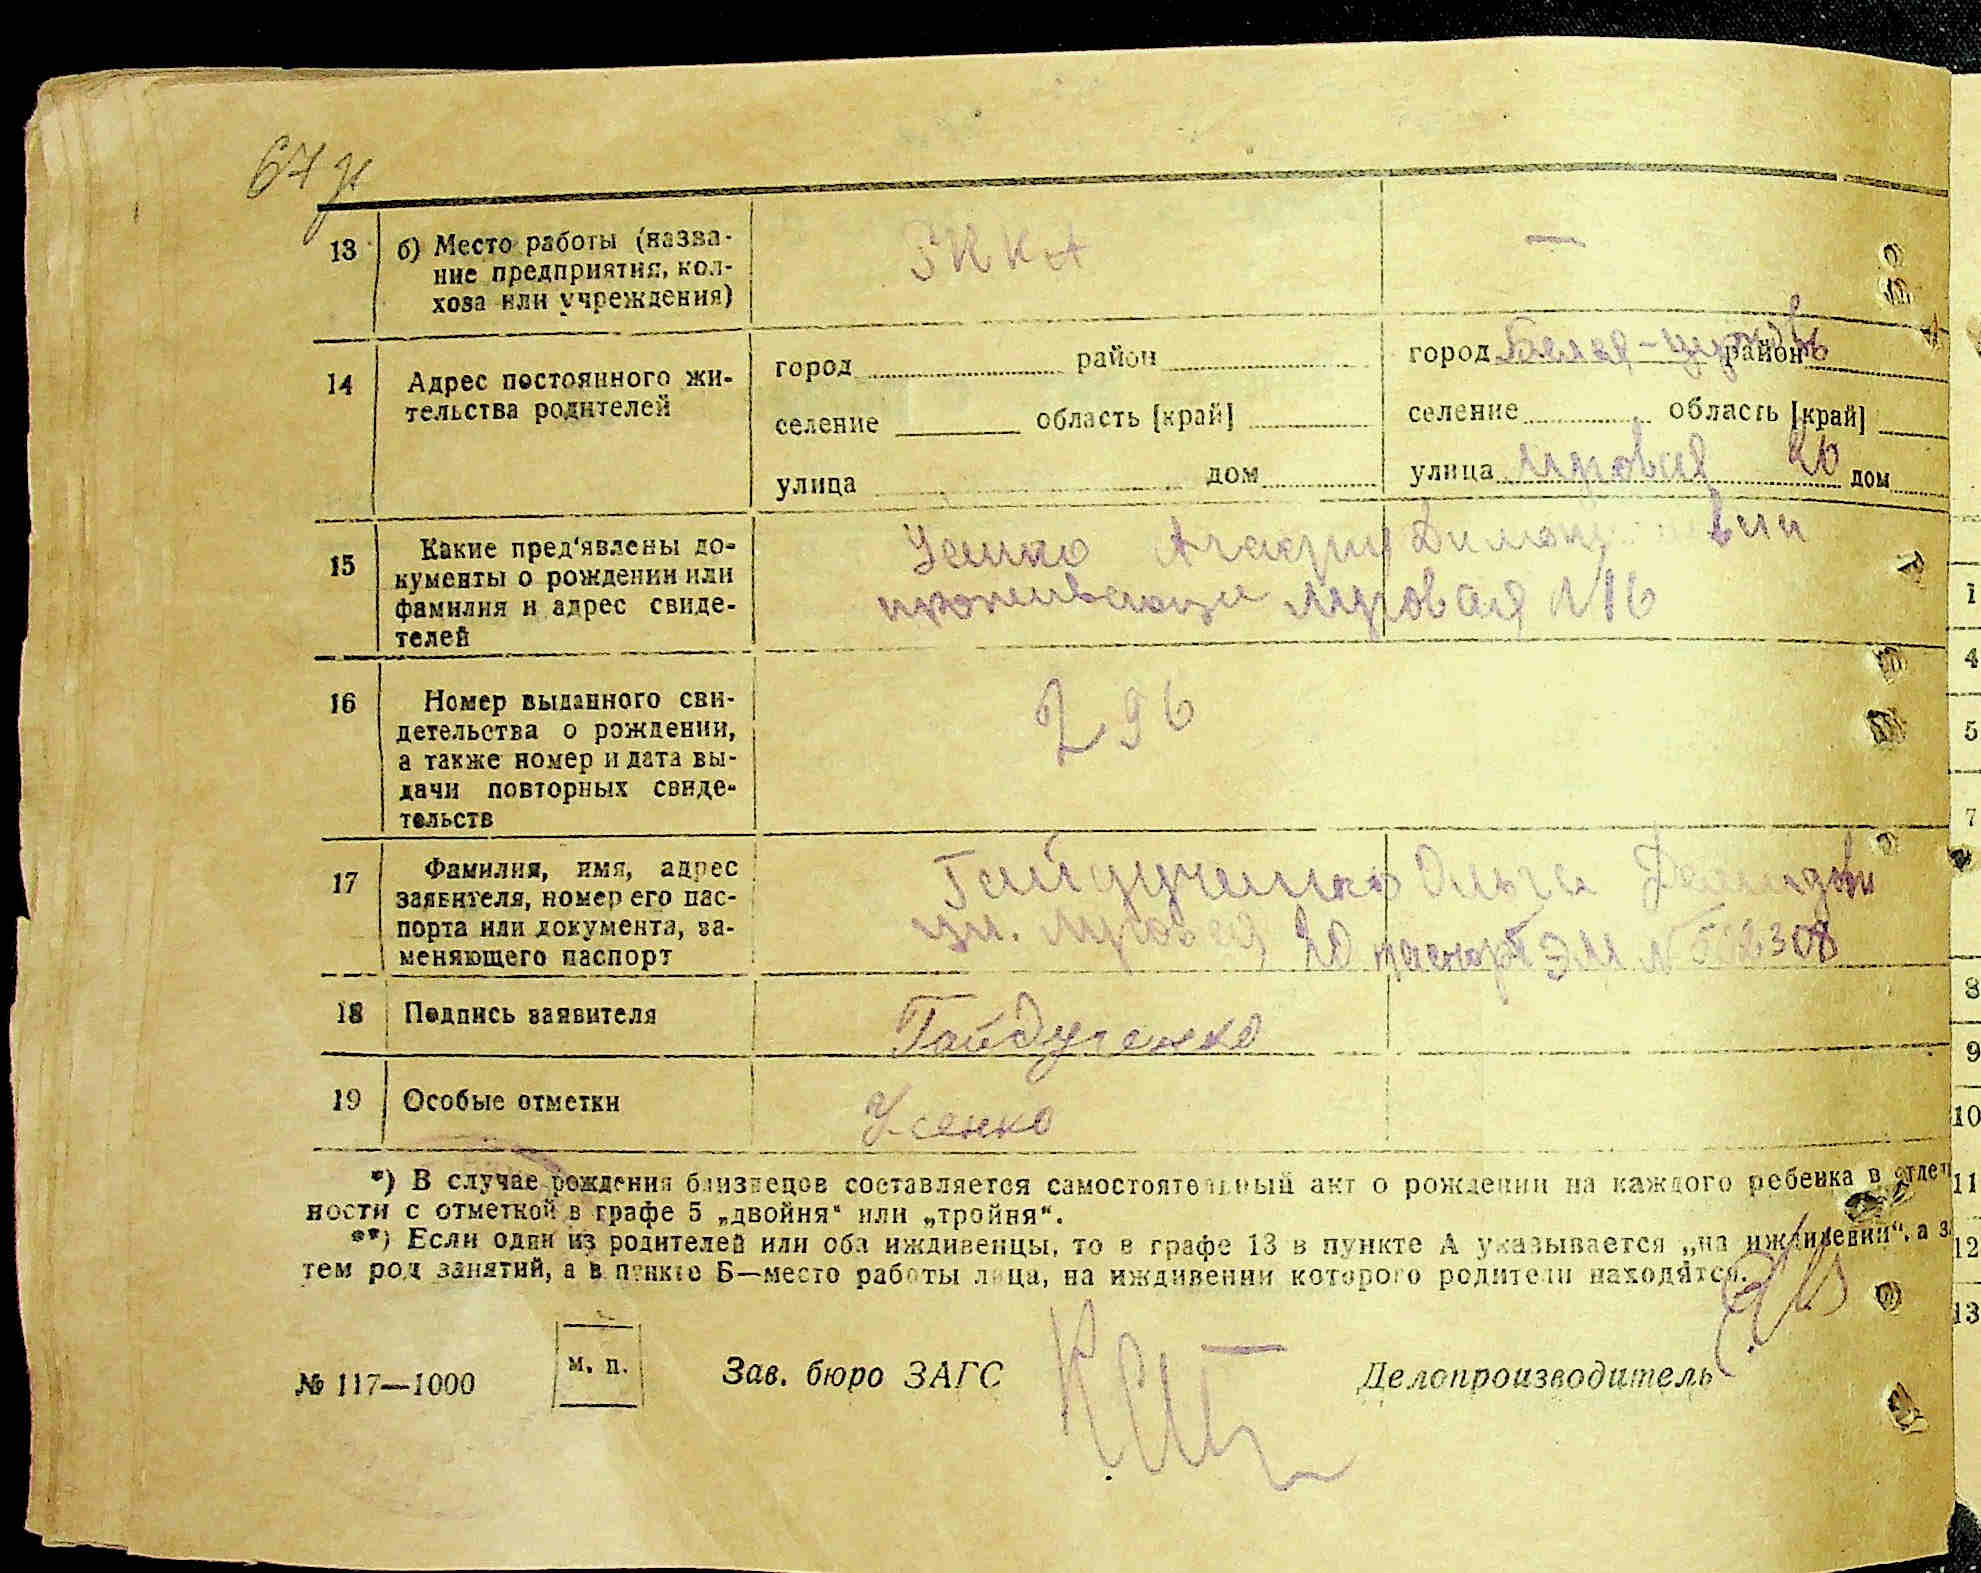 67
13 б) Место работы (назва-
ние предприятия, кол-
хоза или учреждения)
РККА —
14 Адрес постоянного жи-
тельства родителей
город район
селение область [край]
улица дом
город Белая-Церковь район
селение область [край]
улица Луговая 20 дом
15 Какие пред'явлены до-
кументы о рождении или
фамилия и адрес свиде-
телей
Усенко
Луговая №16
16 Номер выданного сви-
детельства о рождении,
а также номер и дата вы-
дачи повторных свиде-
тельств
296
17 Фамилия, имя, адрес
заявителя, номер его пас-
порта или документа, за-
меняющего паспорт
Гайдученко Ольга
ул. Луговая 20 паспорт ЭМ №
18 Подпись заявителя
Гайдученко
19 Особые отметки
Усенко
*) В случае рождения близнецов составляется самостоятельный акт о рождении на каждого ребенка в отдел
ности с отметкой в графе 5 „двойня“ или „тройня“.
**) Если один из родителей или оба иждивенцы, то в графе 13 в пункте А указывается „на иждивении“, а за
тем род занятий, а в пункте Б—место работы лица, на иждивении которого родители находятся.
№ 117—1000
м. п.
Зав. бюро ЗАГС
Делопроизводитель
1
4
5
7
8
9
10
11
12
13